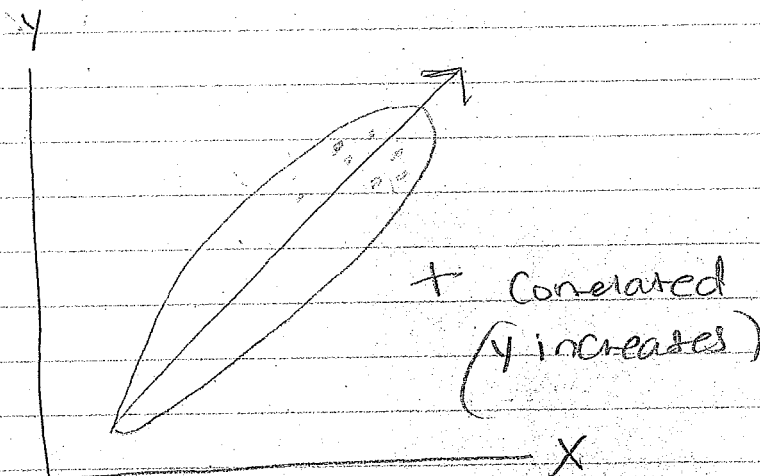 Y
+ Correlated
(Y increases)
X